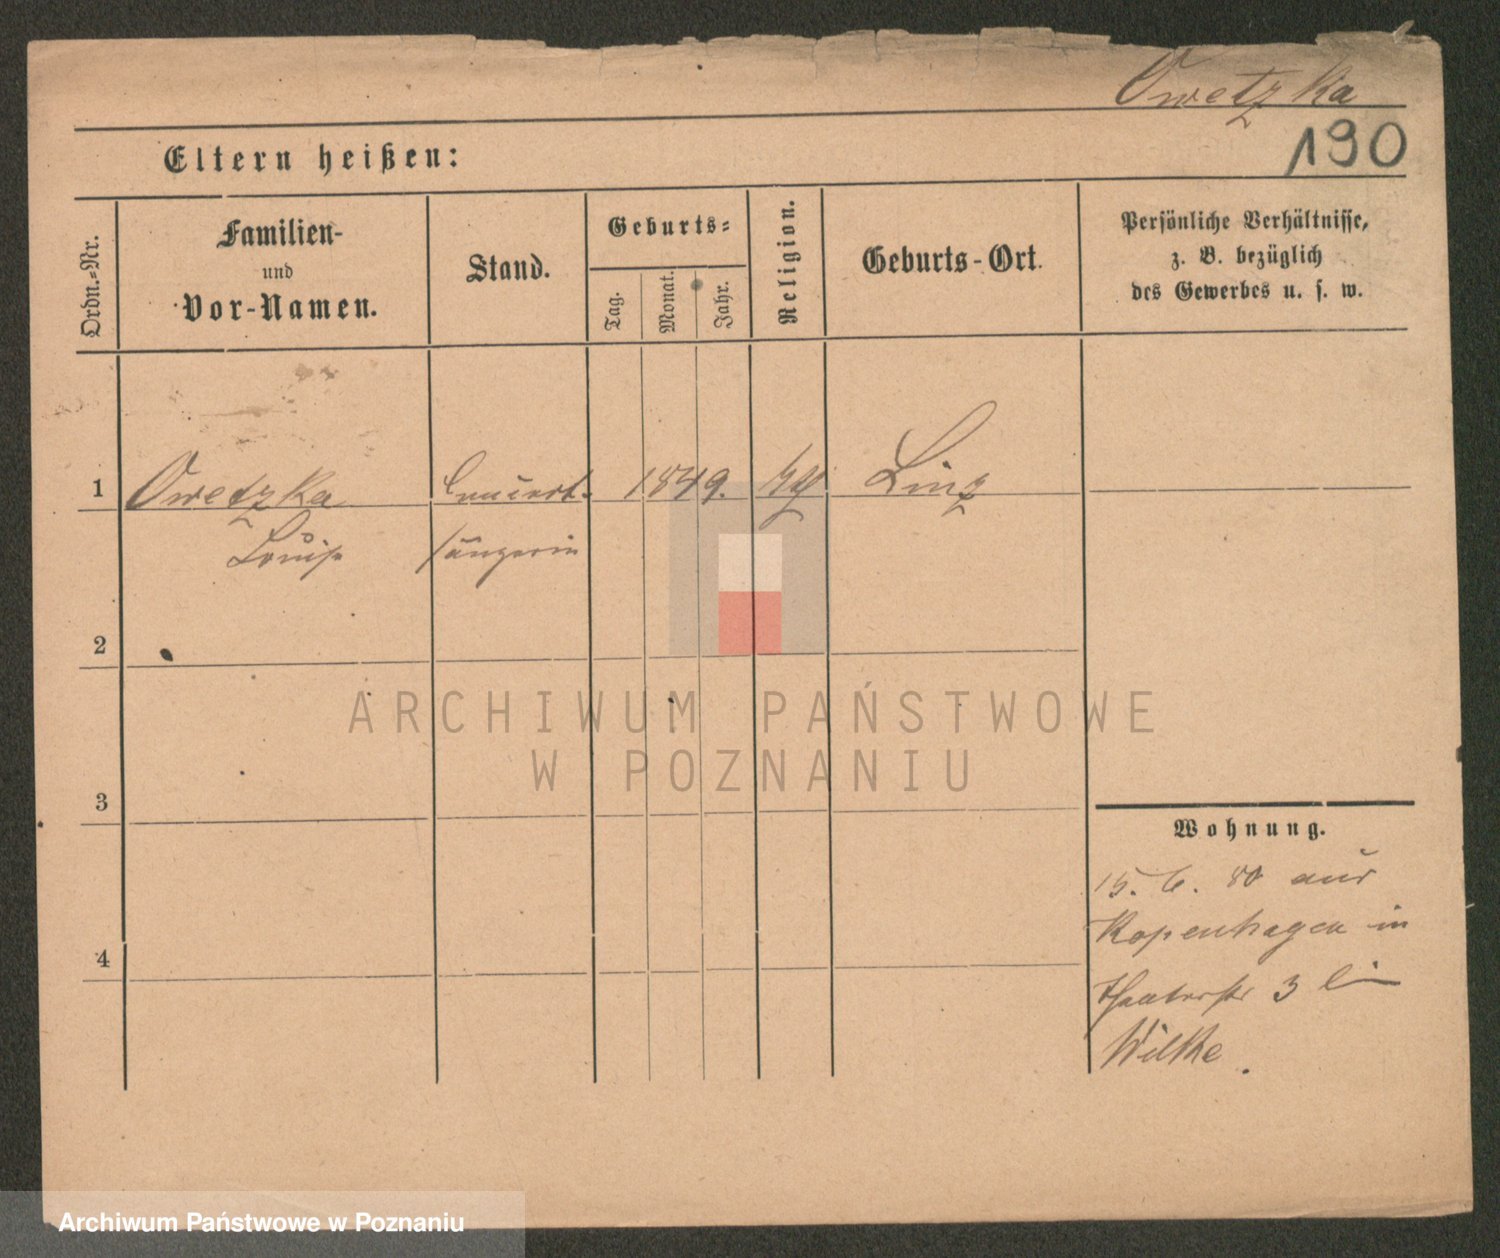 Owetzka
190
Eltern heißen:
Ordn.-Nr.
Familien-
und
Vor-Namen.
Stand.
Geburts-
Tag.
Monat.
Jahr.
Religion.
Geburts-Ort.
Persönliche Verhältnisse,
z. B. bezüglich
des Gewerbes u. s. w.
1 Owetzka Concert- 1849. Linz
Louise sängerin
2
ARCHIWUM PAŃSTWOWE
W POZNANIU
3
Wohnung.
15. 6. 80 aus
Kopenhagen in
4
Theaterstr 3 bei
Wilke.
Archiwum Państwowe w Poznaniu